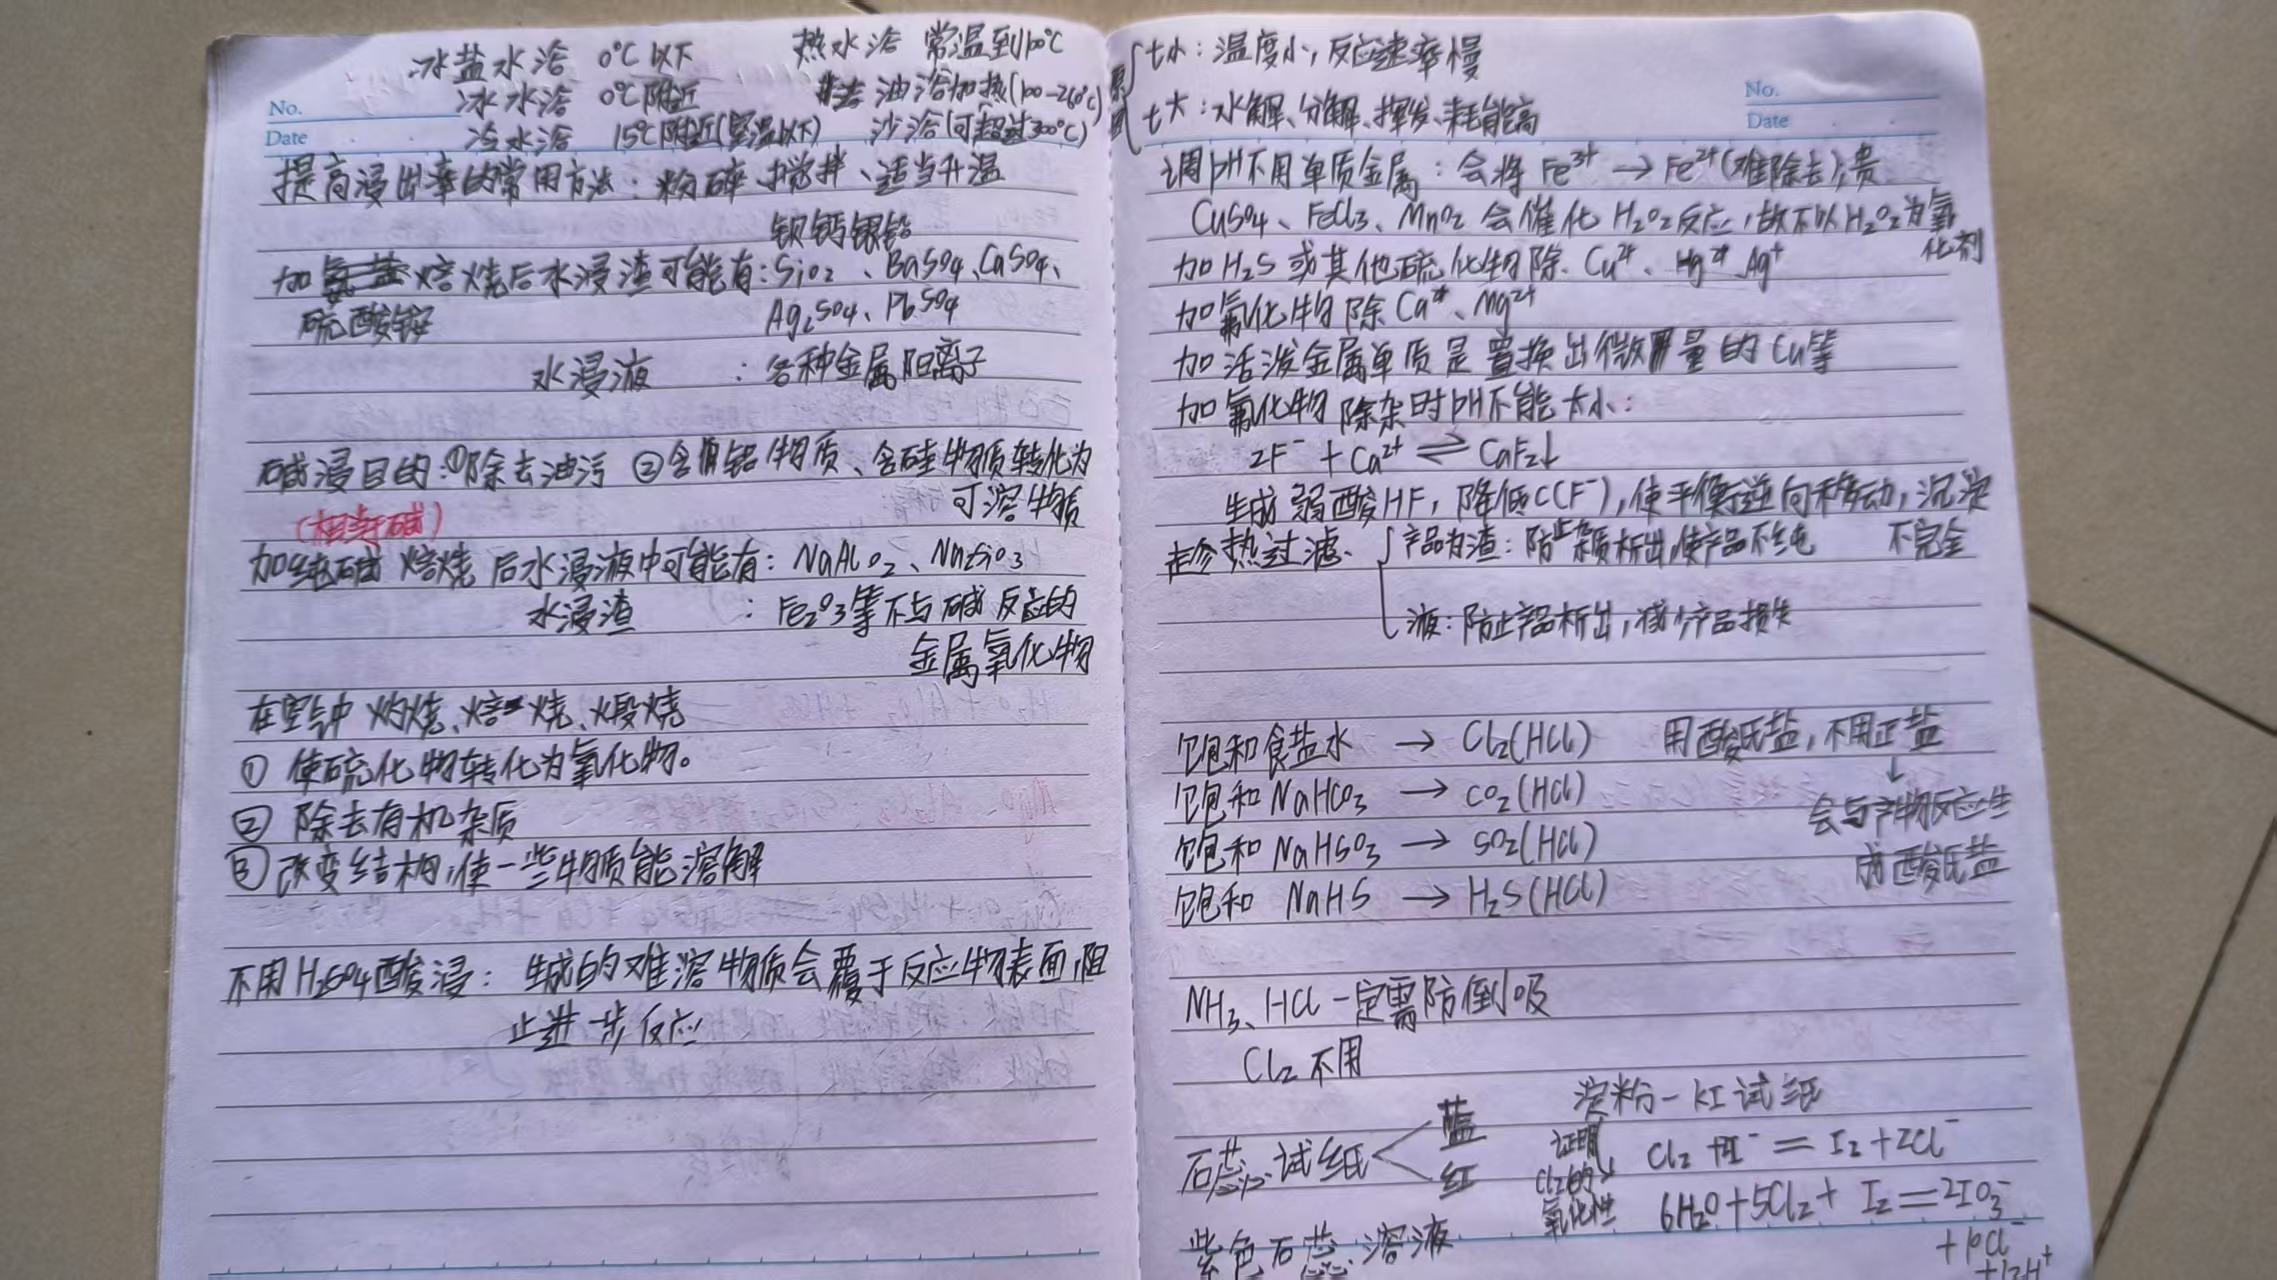 冰盐水浴 0℃以下 热水浴 常温到100℃
冰水浴 0℃附近 油浴加热(100-260℃)
冷水浴 15℃附近(室温以下) 沙浴(可超过300℃)
No.
Date
提高浸出率的常用方法：粉碎、搅拌、适当升温
钡钙银铅
加 焙烧后水浸渣可能有：SiO2、BaSO4、CaSO4、
硫酸铵 Ag2SO4、PbSO4
水浸液 ：各种金属阳离子
碱浸目的：①除去油污 ②含铝物质、含硅物质转化为
可溶物质
(相当于碱)
加纯碱焙烧后水浸液中可能有：NaAlO2、Na2SiO3
水浸渣 ：Fe2O3等不与碱反应的
金属氧化物
在空气中灼烧、焙烧、煅烧
① 使硫化物转化为氧化物。
② 除去有机杂质
③ 改变结构，使一些物质能溶解
不用H2SO4酸浸：生成的难溶物质会覆于反应物表面，阻
止进一步反应
t小：温度小，反应速率慢
t大：水解、分解、挥发、耗能高
No.
Date
调pH不用单质金属：会将Fe3+→Fe2+(难除去)；贵
CuSO4、FeCl3、MnO2会催化H2O2反应，故不以H2O2为氧
化剂
加H2S或其他硫化物除Cu2+、Hg2+、Ag+
加氟化物除Ca2+、Mg2+
加活泼金属单质是置换出微量的Cu等
加氟化物除杂时pH不能太小：
2F- + Ca2+ ⇌ CaF2↓
生成弱酸HF，降低C(F-)，使平衡逆向移动，沉淀
不完全
趁热过滤、 产品为渣：防止杂质析出，使产品不纯
液：防止产品析出，减少产品损失
饱和食盐水 → Cl2(HCl) 用酸式盐，不用正盐
↓
饱和NaHCO3 → CO2(HCl) 会与产物反应生
饱和NaHSO3 → SO2(HCl) 成酸式盐
饱和 NaHS → H2S(HCl)
NH3、HCl一定需防倒吸
Cl2不用
石蕊试纸 蓝
红
淀粉-KI试纸
证明 Cl2的 氧化性
Cl2+2I- = I2+2Cl-
6H2O+5Cl2+ I2==2IO3-
+10Cl-
+12H+
紫色石蕊溶液